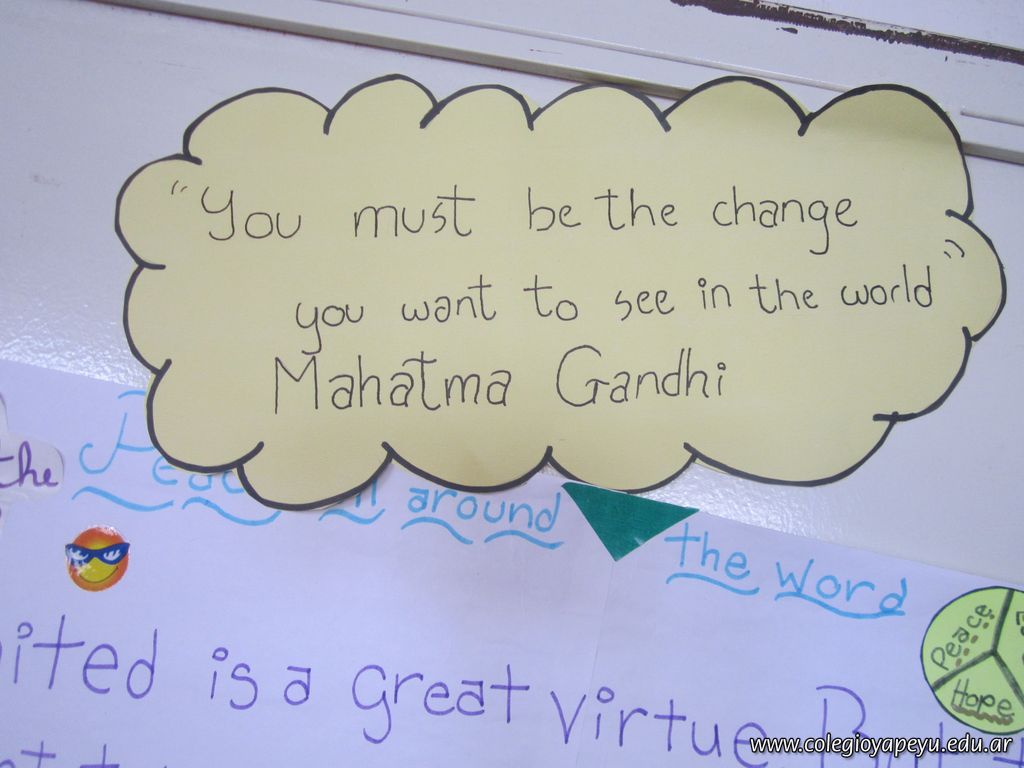 "You must be the change
you want to see in the world"
Mahatma Gandhi
the
around
the Word
Peace
Hope
is a great virtue
www.colegioyapeyu.edu.ar